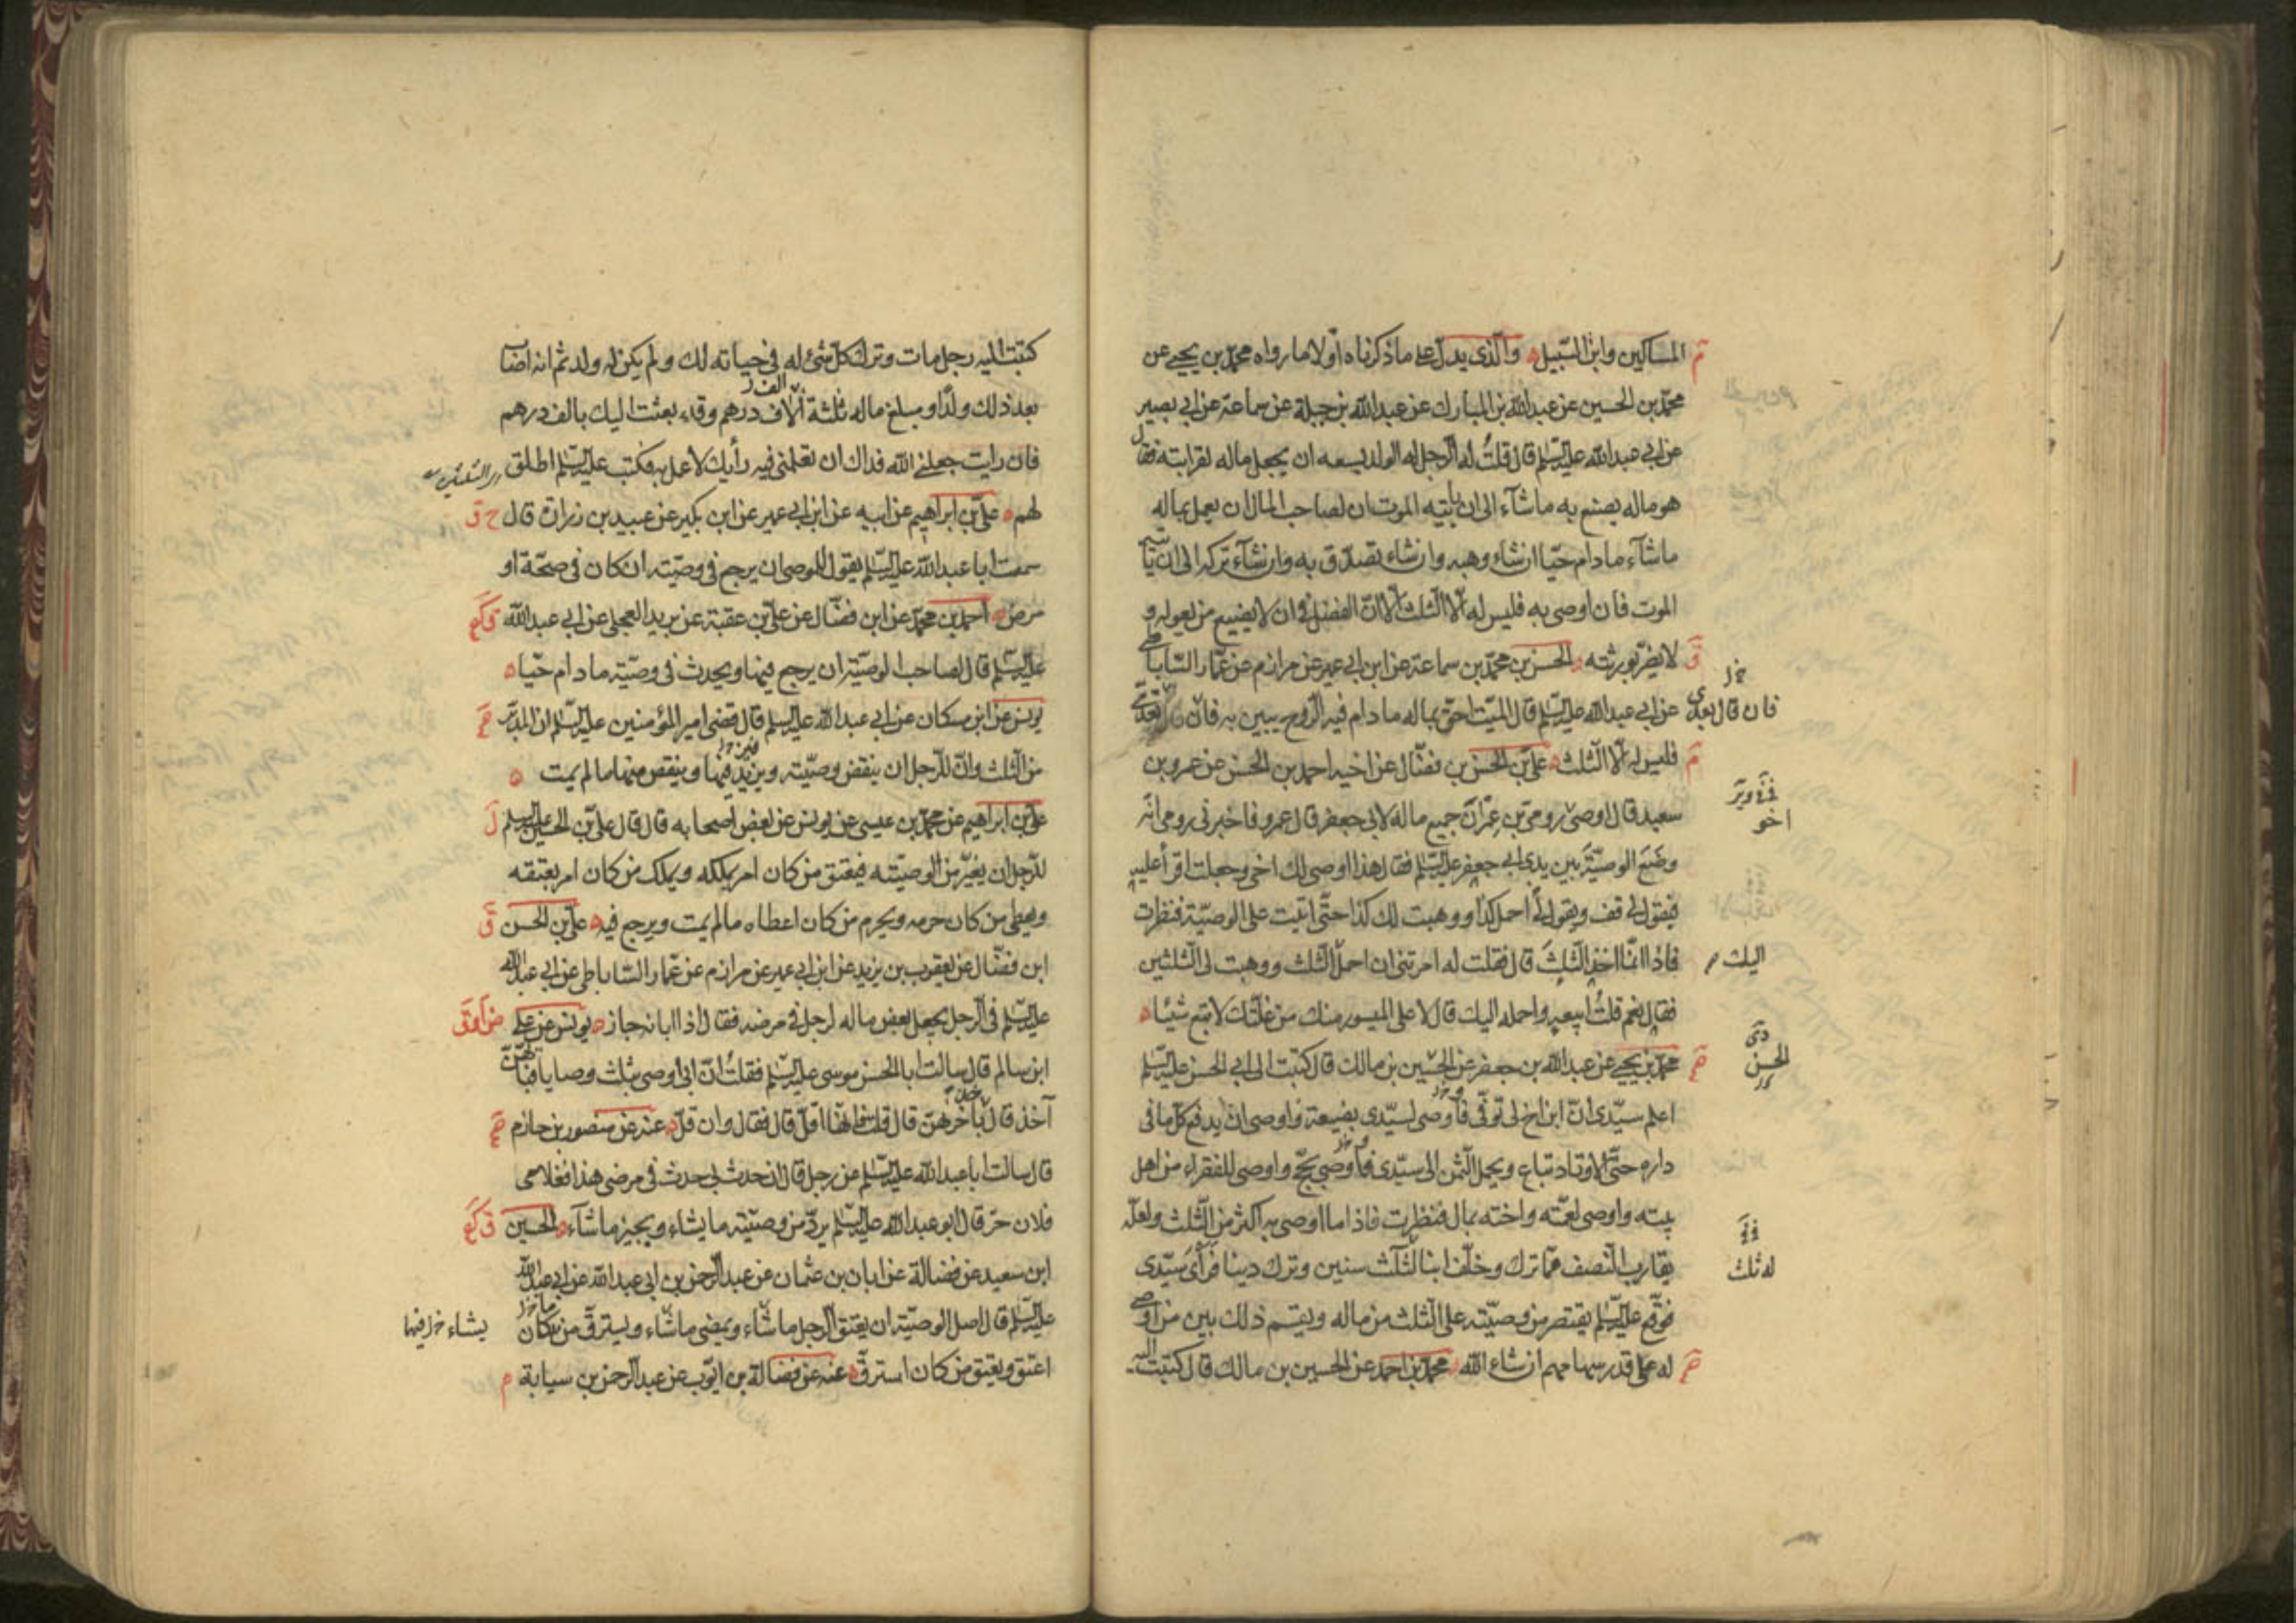 المساكين وابن السّبيل والّذي يدلّ على ما ذكرناه أوّلا ما رواه محمّد بن يحيى عن
محمّد بن الحسين عن عبد الله بن المبارك عن عبد الله بن جبلة عن سماعة عن ابي بصير
عن ابي عبد الله عليه السّلم قال قلتُ له الرّجل له الولد يسعه ان يجعل ماله لقرابته فقال
هو ماله يصنع به ما شآء الى ان يأتيه الموت ان لصاحب المال ان يعمل بماله
ما شآء ما دام حيّا ان شاء وهبه وان شاء تصدّق به وان شآء تركه الى ان يأتيه
الموت فان اوصى به فليس له الّا الثلث الّا انّ الفضل في ان لا يضيع من يعوله و
لا يضرّ بورثته الحسن بن محمّد بن سماعة عن ابن ابي عمير عن مرازم عن عمّار السّاباطي
عن ابي عبد الله عليه السّلم قال الميّت احقّ بماله ما دام فيه الرّوح يبين به فان
فان قال بعدي
فليس له الّا الثلث علىّ بن الحسن بن فضّال عن اخيه احمد بن الحسن عن عمرو بن
سعيد قال اوصى رومى بن عمران جميع ماله لابي جعفر قال عمرو فاخبرني رومى انّه
اخو
وضَعَ الوصيّةَ بين يدي ابي جعفر عليه السّلم فقال هذا اوصى لك اخي وجعلت اقرأ عليه
فيقول لي قف ويقول لي احمل كذا ووهبت لك كذا حتّى اتيت على الوصيّة فنظرت
فاذا انّما اخذ الثلثَ قال فقلت له امرتني ان احمل الثلث ووهبت لي الثلثين
اليك
فقال نعم قلتُ ابيعه واحمله اليك قال لا على الميسور منك من غلّتك لا تبع شيئا
محمّد بن يحيى عن عبد الله بن جعفر عن الحسين بن مالك قال كتبت الى ابي الحسن عليه السّلم
الحسن
اعلم سيّدى انّ ابن اخ لي توفّى فأوصى لسيّدى بضيعة واوصى ان يدفع كلّ ما في
داره حتّى الاوتاد تباع ويحمل الثّمن الى سيّدى فأوصى بحجّ واوصى للفقراء من اهل
بيته واوصى لعمّته واخته بمال فنظرت فاذا ما اوصى به اكثر من الثّلث ولعلّه
يقارب النّصف ممّا ترك وخلّف ابنا لثلث سنين وترك دينا فرأى سيّدى
له ثلث
فوقّع عليه السّلم يقتصر من وصيّته على الثلث من ماله ويقسم ذلك بين من اوصى
له على قدر سهامهم ان شاء الله محمّد بن احمد عن الحسين بن مالك قال كتبت اليه
كتبت اليه رجل مات وترك كلّ شئ له في حياته لك ولم يكن له ولد ثم انه اصاب
بعد ذلك ولدًا ومبلغ ماله ثلثة آلاف درهم وقد بعثت اليك بالف درهم
فان رايت جعلني الله فداك ان تعلمني فيه رأيك لاعمل به فكتب عليه السّلم اطلق
لهم علىّ بن ابراهيم عن ابيه عن ابن ابي عمير عن ابن بكير عن عبيد بن زرارة قال
سمعت ابا عبد الله عليه السّلم يقول للموصى ان يرجع في وصيّته ان كان في صحّة او
مرض احمد بن محمّد عن ابن فضّال عن علىّ بن عقبة عن بريد العجلي عن ابي عبد الله
عليه السّلم قال لصاحب الوصيّة ان يرجع فيها ويحدث في وصيّته ما دام حيّا
يونس عن ابن مسكان عن ابي عبد الله عليه السّلم قال قضى امير المؤمنين عليه السّلم ان المدبّر
من الثلث وانّ للرّجل ان ينقض وصيّته ويزيد فيها وينقص منها ما لم يمت
علىّ بن ابراهيم عن محمّد بن عيسى عن يونس عن بعض اصحابه قال قال علىّ بن الحسين عليه السلم
للرّجل ان يغيّر من الوصيّة فيعتق من كان امر بملكه ويملك من كان امر بعتقه
ويعطى من كان حرمه ويحرم من كان اعطاه ما لم يمت ويرجع فيه علىّ بن الحسن
ابن فضّال عن يعقوب بن يزيد عن ابن ابي عمير عن مرازم عن عمّار السّاباطي عن ابي عبد الله
عليه السّلم في الرّجل يجعل بعض ماله لرجل في مرضه فقال اذا ابانه جاز يونس عن علي
ابن سالم قال سالت ابا الحسن موسى عليه السّلم فقلتُ انّ ابي أوصى بثلث وصايا فبأيّهنّ
آخذ قال بأخرهنّ قال قلت فانّها اقلّ قال فقال وان قلّ عنه عن منصور بن حازم
قال سالت ابا عبد الله عليه السّلم عن رجل قال ان حدث بي حدث في مرضى هذا فغلامى
فلان حرّ قال ابو عبد الله عليه السّلم يردّ من وصيّته ما يشاء ويجيز ما شآء الحسين
ابن سعيد عن فضالة عن ابان بن عثمان عن عبد الرّحمن بن ابي عبد الله عن ابي عبد الله
عليه السّلم قال اصل الوصيّة ان يعتق الرجل ما شآء ويمضى ما شآء ويسترقّ من كان
يشاء فيها
اعتق ويعتق من كان استرقّ عنه عن فضالة بن ايّوب عن عبد الرّحمن بن سيابة